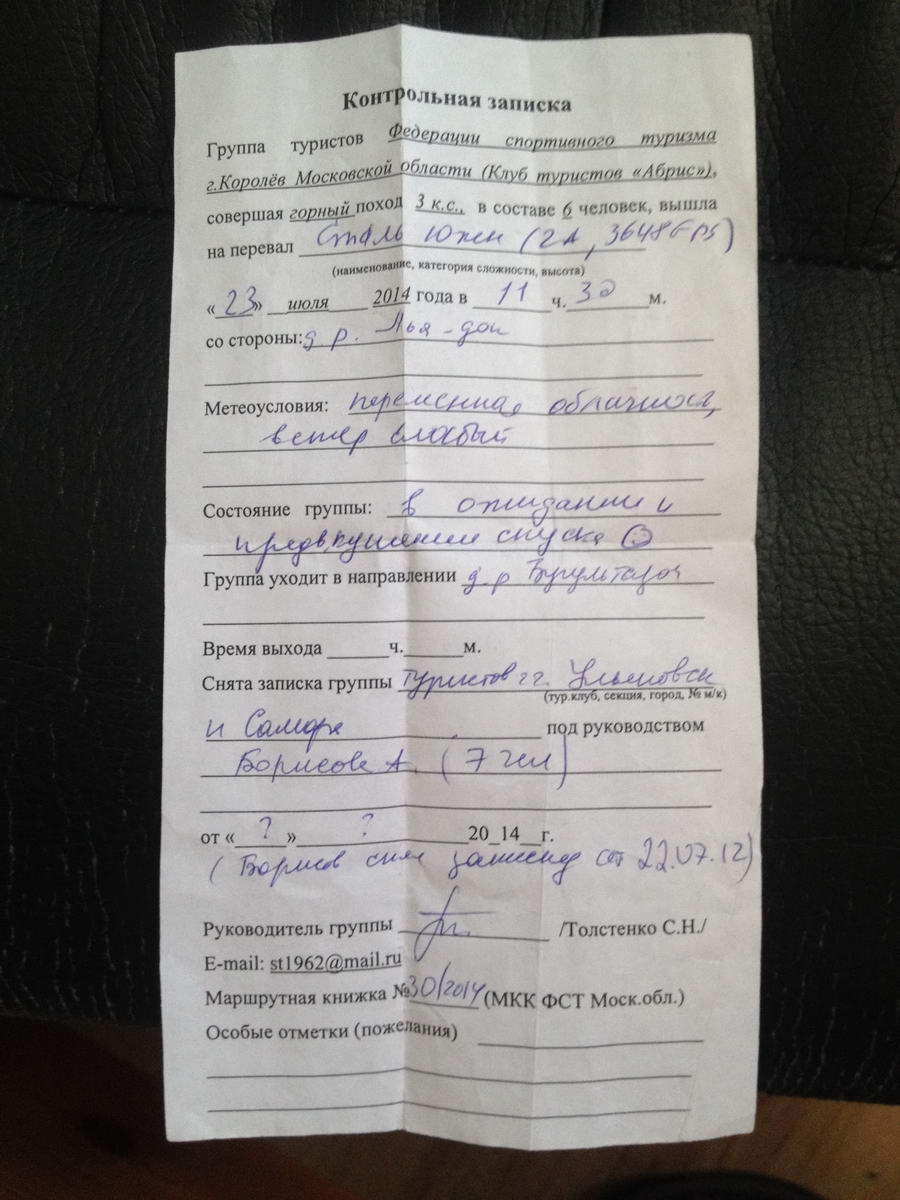 Контрольная записка
Группа туристов Федерации спортивного туризма
г.Королёв Московской области (Клуб туристов «Абрис»),
совершая горный поход 3 к.с., в составе 6 человек, вышла
на перевал Сталь Южн (2А, 3648 GPS)
(наименование, категория сложности, высота)
«23» июля 2014 года в 11 ч. 30 м.
со стороны: д.р. Лья-дон
Метеоусловия: переменная облачность,
ветер слабый
Состояние группы: в ожидании и
предвкушении спуска ☺
Группа уходит в направлении д.р
Время выхода ______ч.______м.
Снята записка группы туристов гг. Ульяновск
(тур.клуб, секция, город, № м/к)
и Самара под руководством
Борисова А. (7 чел)
от «?» ? 20_14__г.
(Борисов снял записку от 22.07.12)
Руководитель группы /Толстенко С.Н./
E-mail: st1962@mail.ru
Маршрутная книжка №30/2014 (МКК ФСТ Моск.обл.)
Особые отметки (пожелания)